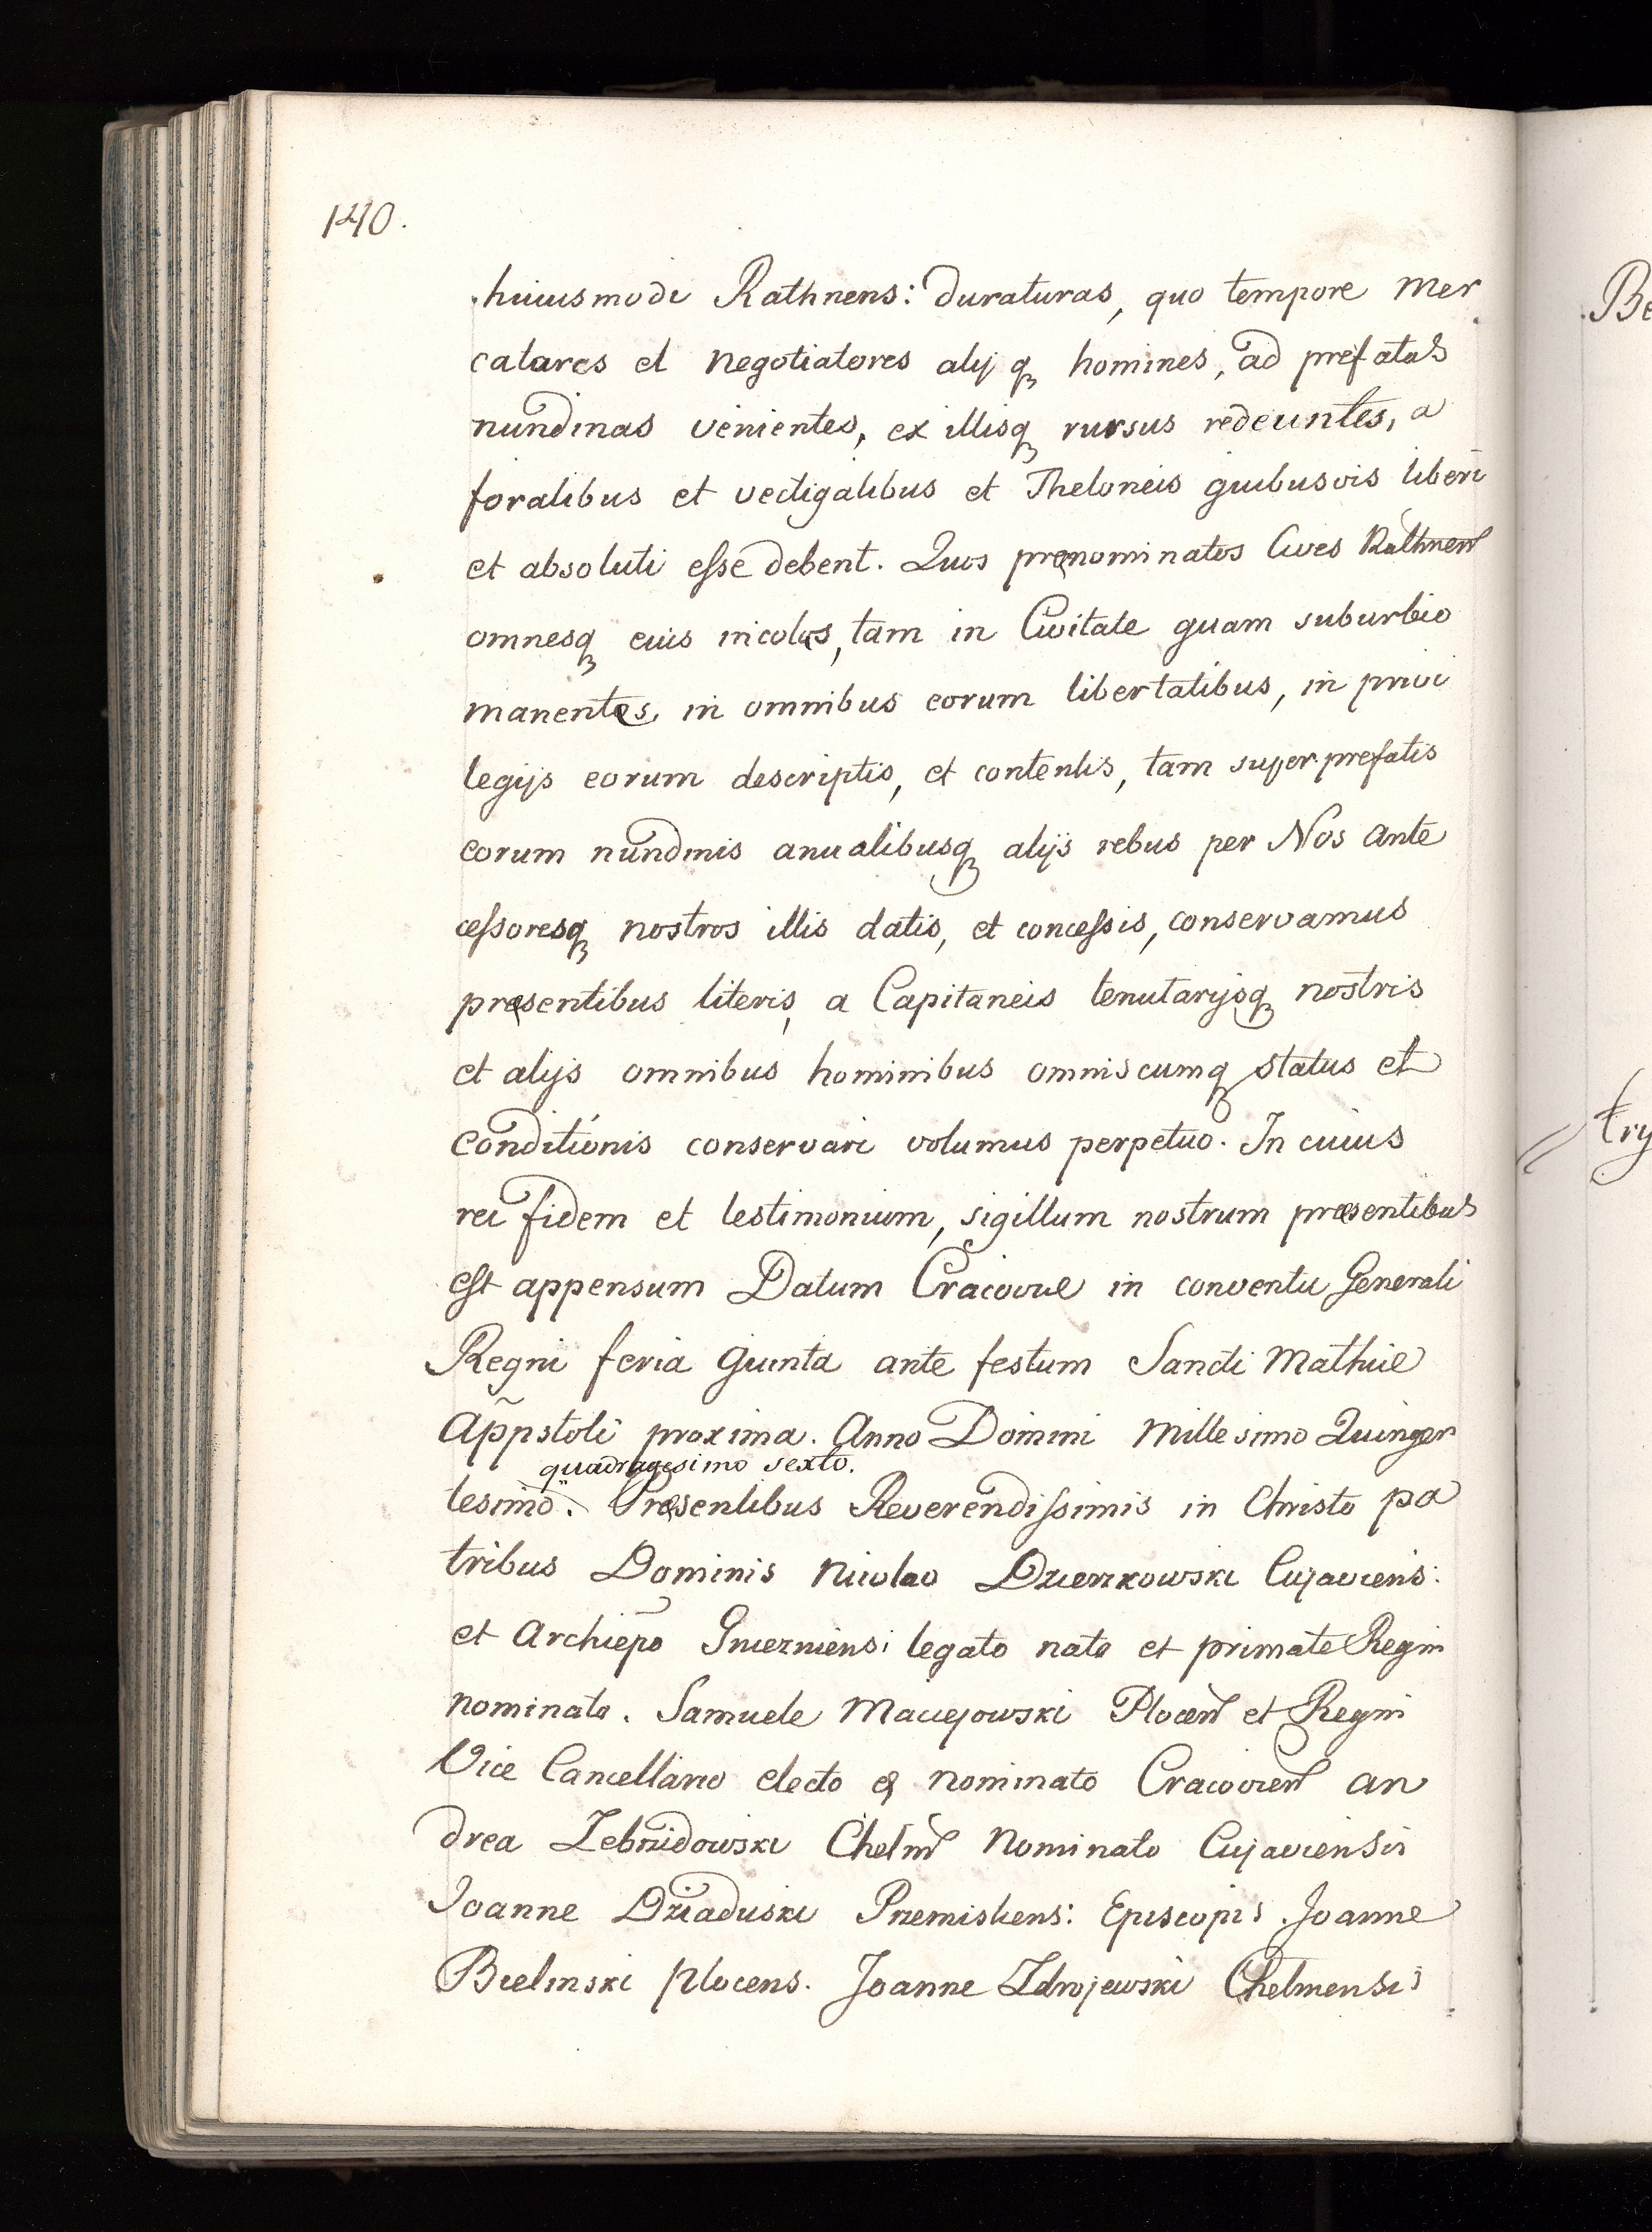 140.
huiusmodi Rathnens: duraturas, quo tempore Mer
catares et negotiatores alij q₃ homines, ad prefatas
nundinas venientes, ex illisq₃ rursus redeuntes, a
foralibus et vectigalibus et Theloneis quibusvis liberi
et absoluti esse debent. Quos pręnominatos Cives Rathnen
omnesq₃ eius incolas, tam in Civitate quam suburbio
manentes, in omnibus eorum libertatibus, in privi
legijs eorum descriptis, et contentis, tam super prefatis
eorum nundinis anualibusq₃ alijs rebus per Nos ante
cessoresq₃ nostros illis datis, et concessis, conservamus
pręsentibus literis, a Capitaneis tenutarijsq₃ nostris
et alijs omnibus hominibus omniscumq₃ status et
conditionis conservari volumus perpetuo. In cuius
rei fidem et testimonium, sigillum nostrum præsentibus
est appensum Datum Cracoviæ in conventu Generali
Regni feria quinta ante festum Sancti Mathiæ
Appstoli proxima. Anno Domini Millesimo Quingen
quadragesimo sexto.
tesimo. Pręsentibus Reverendissimis in Christo pa
tribus Dominis Nicolao Dzierzkowski Cujaviens:
et Archiepo Gniezniensi legato nato et primate Regni
nominato. Samuele Maciejowski Plocen et Regni
Vice Cancellario electo & nominato Cracovien an
drea Zebrzidowski Chelm Nominato Cujaviensis
Joanne Dziaduski Przemisliens: Episcopis. Joanne
Bielinski Plocens. Joanne Zdrojewski Chelmensis
Be
try